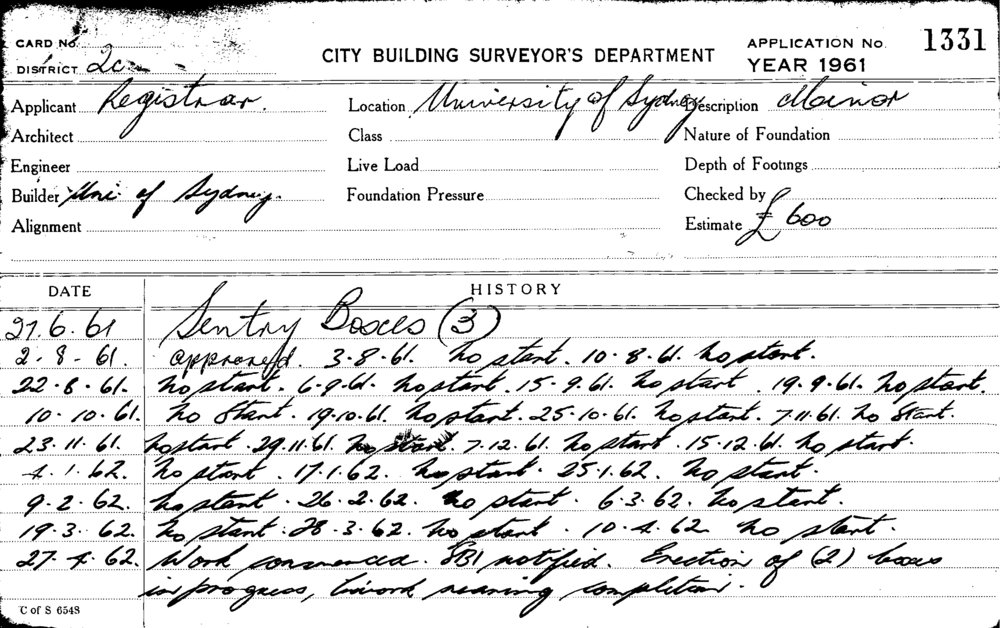 CARD No.
DISTRICT 2c
CITY BUILDING SURVEYOR'S DEPARTMENT
APPLICATION No. 1331
YEAR 1961
Applicant Registrar.
Location University of Sydney
Description Minor
Architect
Class
Nature of Foundation
Engineer
Live Load
Depth of Footings
Builder Uni of Sydney.
Foundation Pressure
Checked by
Alignment
Estimate £ 600
DATE HISTORY
27.6.61 Sentry Boxes (3)
2.8.61. approved. 3.8.61. No start. 10.8.61. No start.
22.8.61. No start. 6.9.61. No start. 15.9.61. No start. 19.9.61. No start.
10.10.61. No Start. 19.10.61. No start. 25.10.61. No start. 7.11.61. No Start.
23.11.61. No start. 29.11.61. No start. 7.12.61. No start. 15.12.61. No start.
4.1.62. No start. 17.1.62. No start. 25.1.62. No start.
9.2.62. No start. 26.2.62. No start. 6.3.62. No start.
19.3.62. No start. 28.3.62. No start. 10.4.62. No start.
27.4.62. Work commenced. notified. Erection of (2) boxes
in progress, nearing completion.
C of S 6548